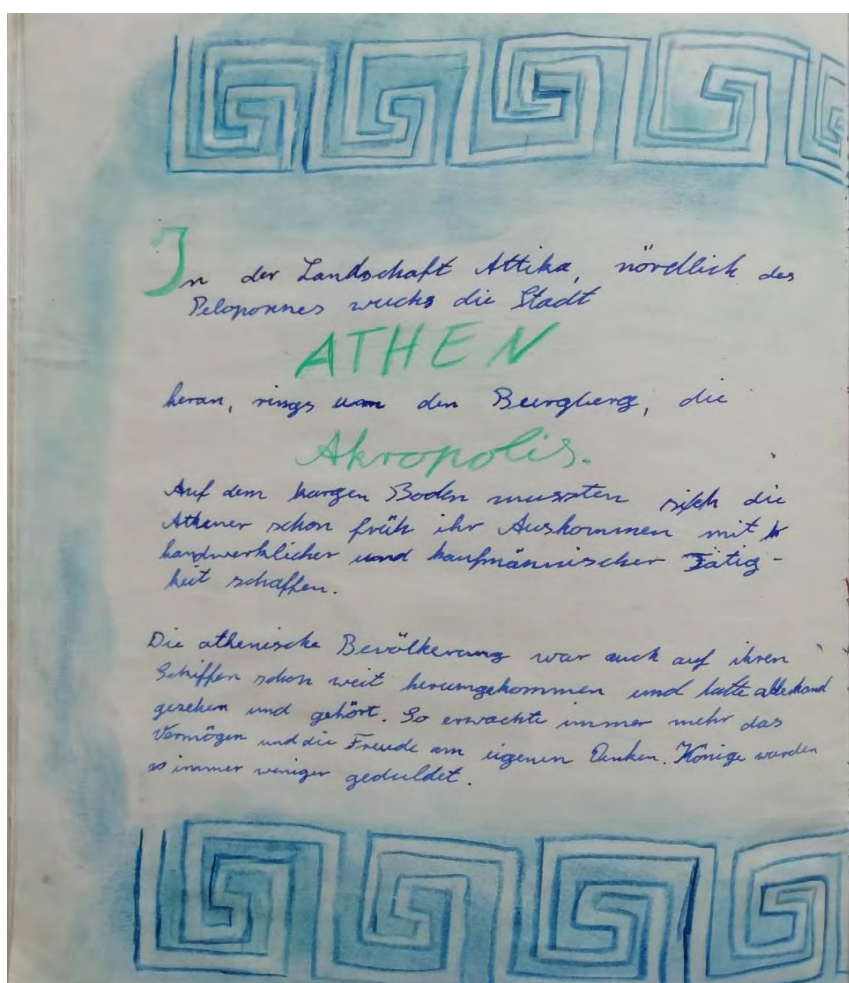 In der Landschaft Attika, nördlich des
Peloponnes wuchs die Stadt
ATHEN
heran, rings um den Burgberg, die
Akropolis.
Auf dem kargen Boden mussten sich die
Athener schon früh ihr Auskommen mit
handwerklicher und kaufmännischer Tätig-
keit schaffen.
Die athenische Bevölkerung war auch auf ihren
Schiffen schon weit herumgekommen und hatte allerhand
gesehen und gehört. So erwachte immer mehr das
Vermögen und die Freude am eigenen Denken. Könige wurden
so immer weniger geduldet.